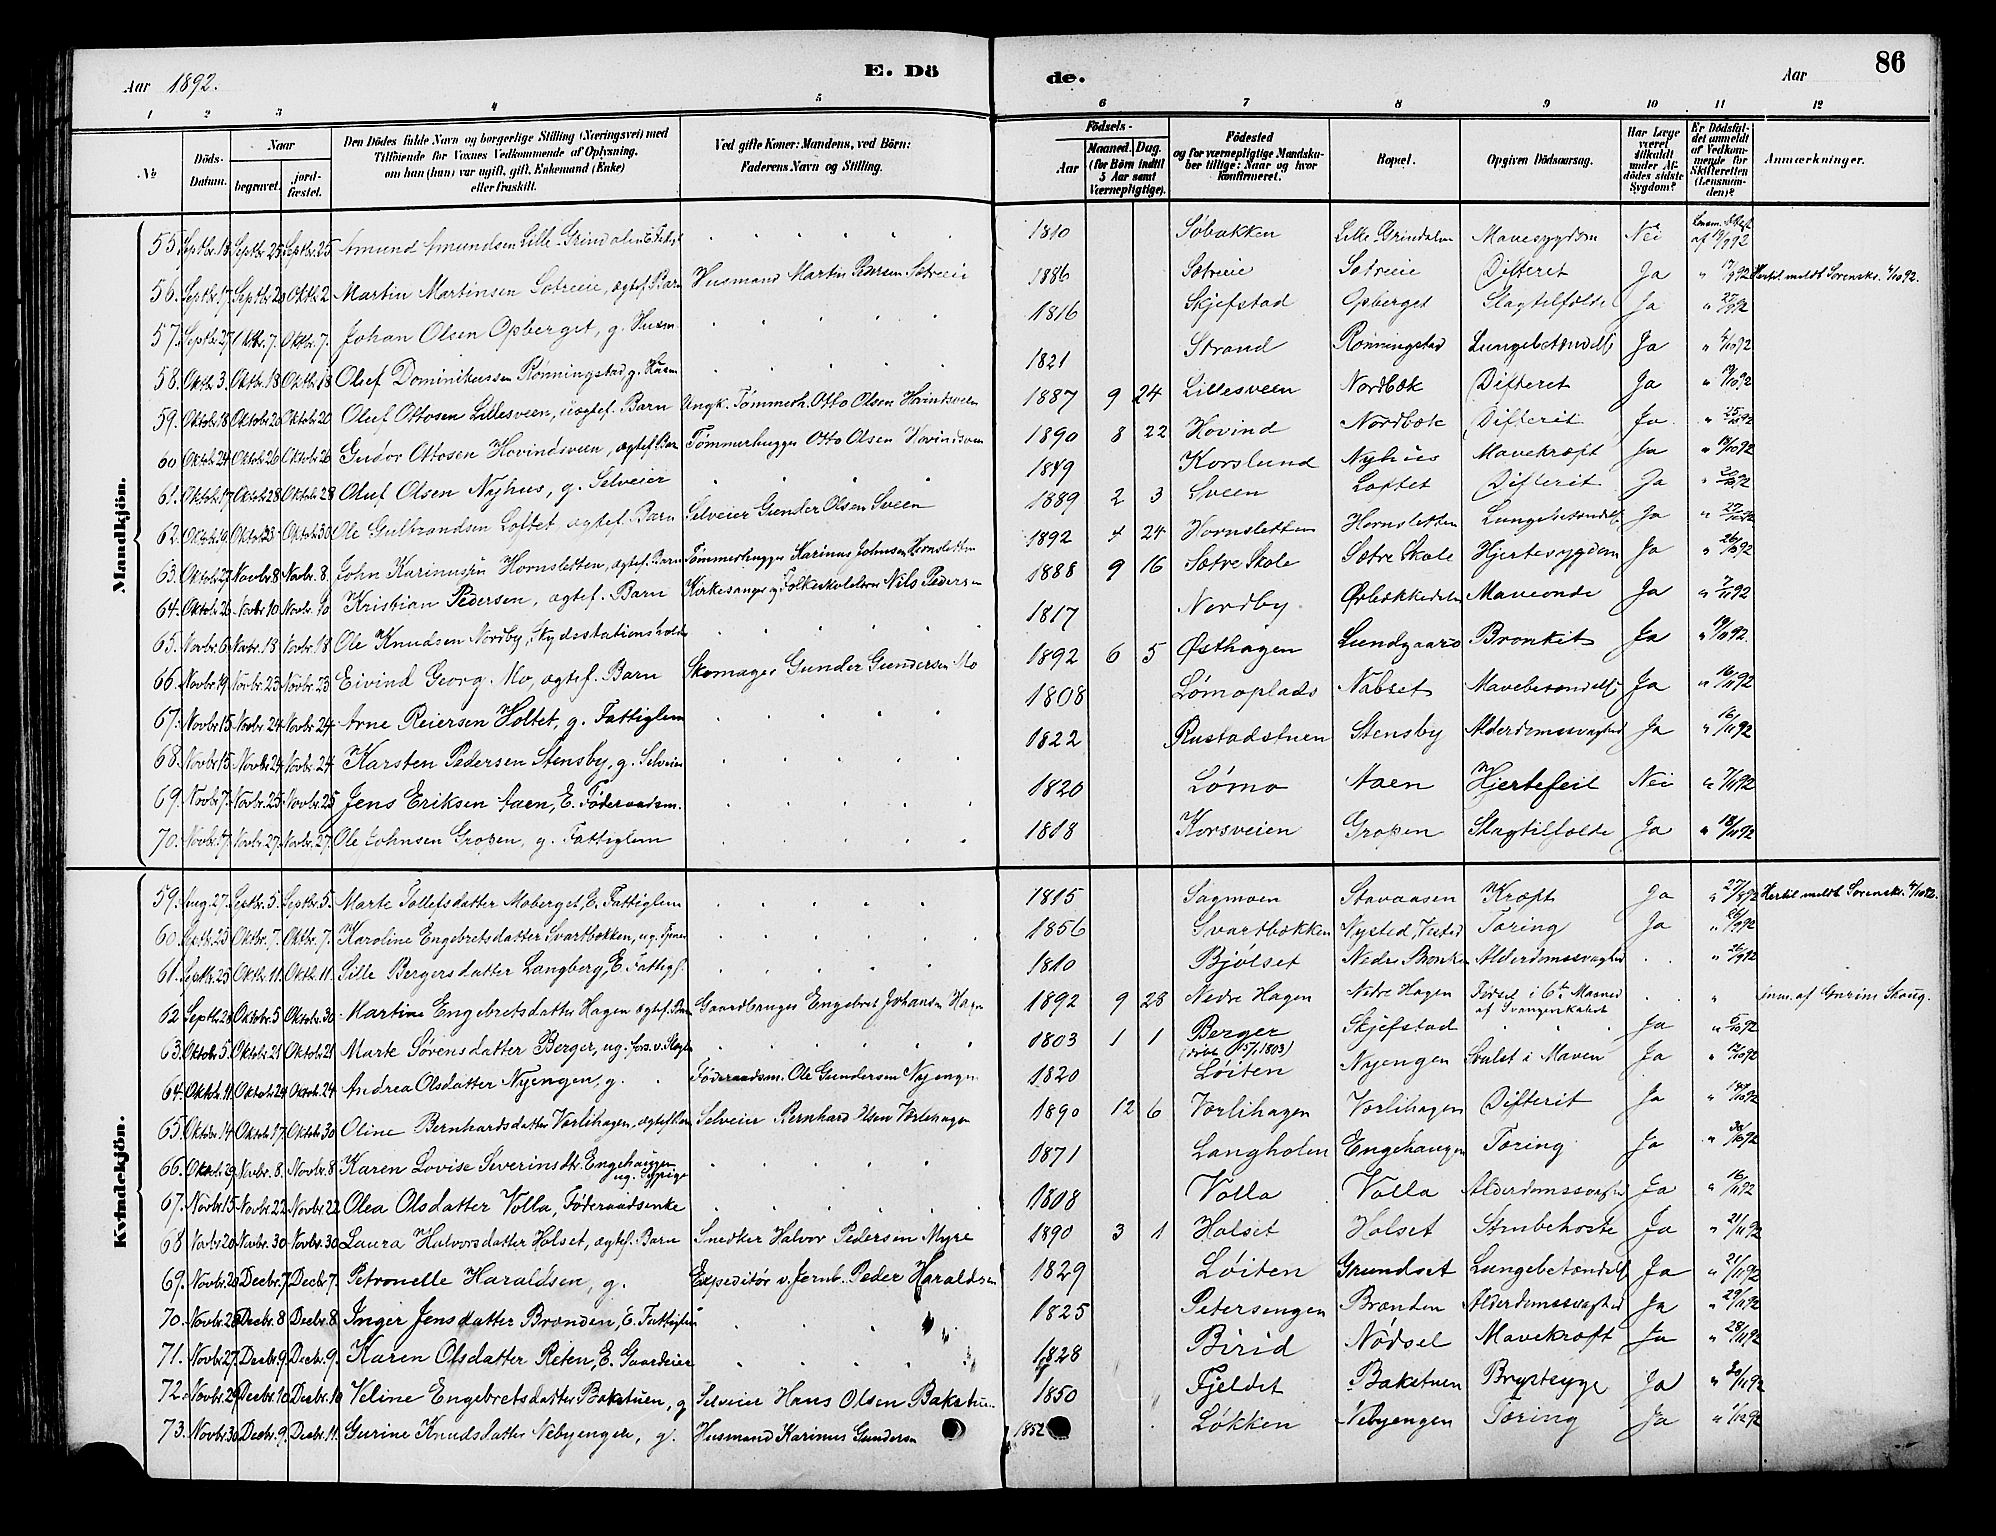 Aar 1892.
E. Dö
de.
Aar
86
1 2 3 4 5 6 7 8 9 10 11 12
№
Döds-Datum.
Naar
begravet.
jord-fæstet.
Den Dödes fulde Navn og borgerlige Stilling (Næringsvei) med
Tilföiende for Voxnes Vedkommende af Oplysning,
om han (hun) var ugift, gift, Enkemand (Enke)
eller fraskilt.
Ved gifte Koner: Mandens, ved Börn:
Faderens Navn og Stilling.
Födsels-
Aar
Maaned. Dag.
(for Börn indtil
5 Aar samt
Værnepligtige).
Födested
og for værnepligtige Mandskaber tillige: Naar og hvor
konfirmeret.
Bopæl.
Opgiven Dödsaarsag.
Har Læge
været
tilkaldt
under Afdödes sidste
Sygdom?
Er Dödsfaldet anmeldt
af Vedkommende for
Skifteretten
(Lensmanden)?
Anmærkninger.
Mandkjön.
55. Septbr. 18 Septbr. 25 Septbr. 25 Amund Amundsen Lille Grindalen 1810 Søbakken Lille Grindalen Mavesygdom Nei
56. Septbr. 17. Octbr. 2 Martin Martinsen Sætreeie, ægtef. Barn Husmand Martin Pedersen Sætreeie 1886 Sætreeie Sætreeie Difterit Ja " 17/9 92
57. Septbr. 27 Oktbr. 7. Johan Olsen Opberget, g. Husm. 1816 Skjefstad Opberget Slagtilfælde Ja " 27/9 92
58. Oktb. 3. Oktbr. 18 Oktbr. 18 Oluf Dominikussen Rønningstad g. Husm 1821 Strand Rønningstad Lungebetændels Ja
59. Oktob. 18 Oktobr. 20 Oktobr. 20 Oluf Ottosen Lillesveen, uægtef. Barn Ungk. Tømmerh. Otto Olsen Hovindsveen 1887 9 24 Lillesveen Nordbæk Difterit Ja " 19/10 92
60 Oktob. 24 Oktob. 26 Oktobr. 26 Gudor Ottosen Hovindsveen, ægtef. Barn Tømmerhugger Otto Olsen Hovindsveen 1890 8 22 Hovind Nordbæk Difterit Ja. " 25/10 92
61. Oktob. 17 Oktob. 28 Oktobr. 28 Oluf Olsen Nyhus, g. Selveier 1849 Korslund Nyhus Mavekræft Ja
62. Oktobr. 30 Ole Gulbrandsen Loftet ægtef. Barn Selveier Gunder Olsen Sveen 1889 2 3 Sveen Loftet Difterit Ja
63. Oktob. 27 Novbr. 8 Novbr. 8. John Karinusen Hornsletten, ægtef. Barn Tømmerhugger Karinus Johnsen Hornsletten 1892 4 24 Hornsletten Hornsletten Lungebetændels Ja
64. Oktob. 26 Novbr. 10 Novbr. 10 Kristian Pedersen, ægtef. Barn Kirkesanger og Folkeskolelærer Nils Pedersen 1888 9 16 Sætre Skole Sætre Skole Hjertesygdom Ja " 26/10 92
65. Novbr. 6 Novbr. 18 Novbr. 18 Ole Knudsen Nordby, Skydsstationsholder 1817 Nordby Ørbækkedalen Maveonde Ja " 7/11 92
66. Novbr. 19 Novbr. 23 Novbr. 23 Eivind Georg. Mo, ægtef. Barn Skomager Gunder Gundersen Mo 1892 6 5 Østhagen Lundgaard Bronkit Ja " 19/11 92.
67. Novbr. 15. Novbr. 24. Novbr. 24. Arne Reiersen Holtet, g. Fattiglem 1808 Lømoplads Nabset Mavebetændels Ja " 16/11 92
68. Novbr. 15. Novbr. 24. Novbr. 24. Karsten Pedersen Stensby, g. Selveier 1822 Rustadstuen Stensby Alderdomssvaghed Ja " 16/11 92
69. Novbr. 7. Novbr. 25. Novbr. 25 Jens Eriksen Aaen, E. Føderaadsm. 1820 Lømo Aaen Hjertefeil Nei " 7/11 92
70. Novbr. 17. Novbr. 27. Novbr. 27. Ole Johnsen Gropen, g. Fattiglem 1818 Korsveien Gropen Slagtilfælde Ja " 18/11 92
Kvindekjön.
59. Aug. 27. Septbr. 5. Septbr. 5. Marte Tollefsdatter Moberget, E. Fattiglem 1815 Sagmoen Stavaasen Kræft Ja " 27/8 92
60 Septb. 25 Oktbr. 7. Oktbr. 7. Karoline Engebretsdatter Svartbækken, ug. Tjener 1856 Svartbækken Nysted, Vested Tæring Ja
61. Septbr. 25 Oktbr. 11 Oktb. 11. Sille Bergersdatter Langberg, E. Fattigl. 1810 Bjølset Nedre Alderdomssvaghed " 26/9 92
62 Oktob. 5 Oktob. 30 Martine Engebretsdatter Hagen ægtef. Barn Gaardbruger Engebret Johansen Hagen 1892 9 28 Nedre Hagen Nedre Hagen Født i 6te Maaned af Svangerskabet " inm. af Gurim Skaug.
63. Oktob. 5. Oktob. 21 Oktob. 21 Marte Sørensdatter Berger, ug. 1803 1 1 Berger Skjefstad Ja " 5/10 92
64. Oktob. 11 Oktob. 24 Oktob. 24 Andrea Olsdatter Nyengen, g. Føderaadsm. Ole Gundersen Nyengen 1820 Løiten Nyengen Svulst i Maven Ja " 12/10 92
65. Oktobr. 14 Oktob. 17. Oktob. 30 Oline Bernhardsdatter Vorlihagen, ægtef. Barn Selveier Bernhard Olsen Vorlihagen 1890 12 6 Vorlihagen Vorlihagen Difterit Ja
66. Oktob. 29 Novbr. 8. Novbr. 8 Karen Lovise Severinsdtr. Engehaugen 1871 Langholen Engehaugen Tæring Ja
67. Novbr. 15 Novbr. 22 Novbr. 22 Olea Olsdatter Volla, Føderaadsenke 1808 Volla Volla Alderdomssvaghed Ja " 16/11 92
68 Novbr. 20 Novbr. 30 Novbr. 30 Laura Halvorsdatter Holset, ægtef. Barn Snedker Halvor Pedersen Myre 1890 3 1 Holset Holset Strubehoste Ja " 21/11 92
69. Novbr. 20 Decbr. 7 Decbr. 7. Petronelle Haraldsen, g. Expeditör v. Jernb. Peder Haraldsen 1829 Løiten Grundset Lungebetændels Ja " 21/11 92
70. Novbr. 28 Decbr. 8 Decbr. 8 Inger Jensdatter Brænden, E. Fattiglem 1825 Petersengen Brænden Alderdomssvaghed Ja " 29/11 92
71. Novbr. 27. Decbr. 9. Decbr. 9. Karen Olsdatter Reten, E. Gaardeier 1828 Birid Nødsel Mavekræft Ja " 28/11 92
72. Novbr. 29 Decbr. 10 Decbr. 10 Veline Engebretsdatter Bakstuen, g Selveier Hans Olsen Bakstuen 1850 Fjeldet Bakstuen Brystsyge Ja " 30/11 92
73. Novbr. 30 Decbr. 9. Decbr. 11. Gurine Knudsdatter Nebyengen, g. Husmand Karinus Gundersen 1852 Løkken Nebyengen Tæring Ja " 1/12 92